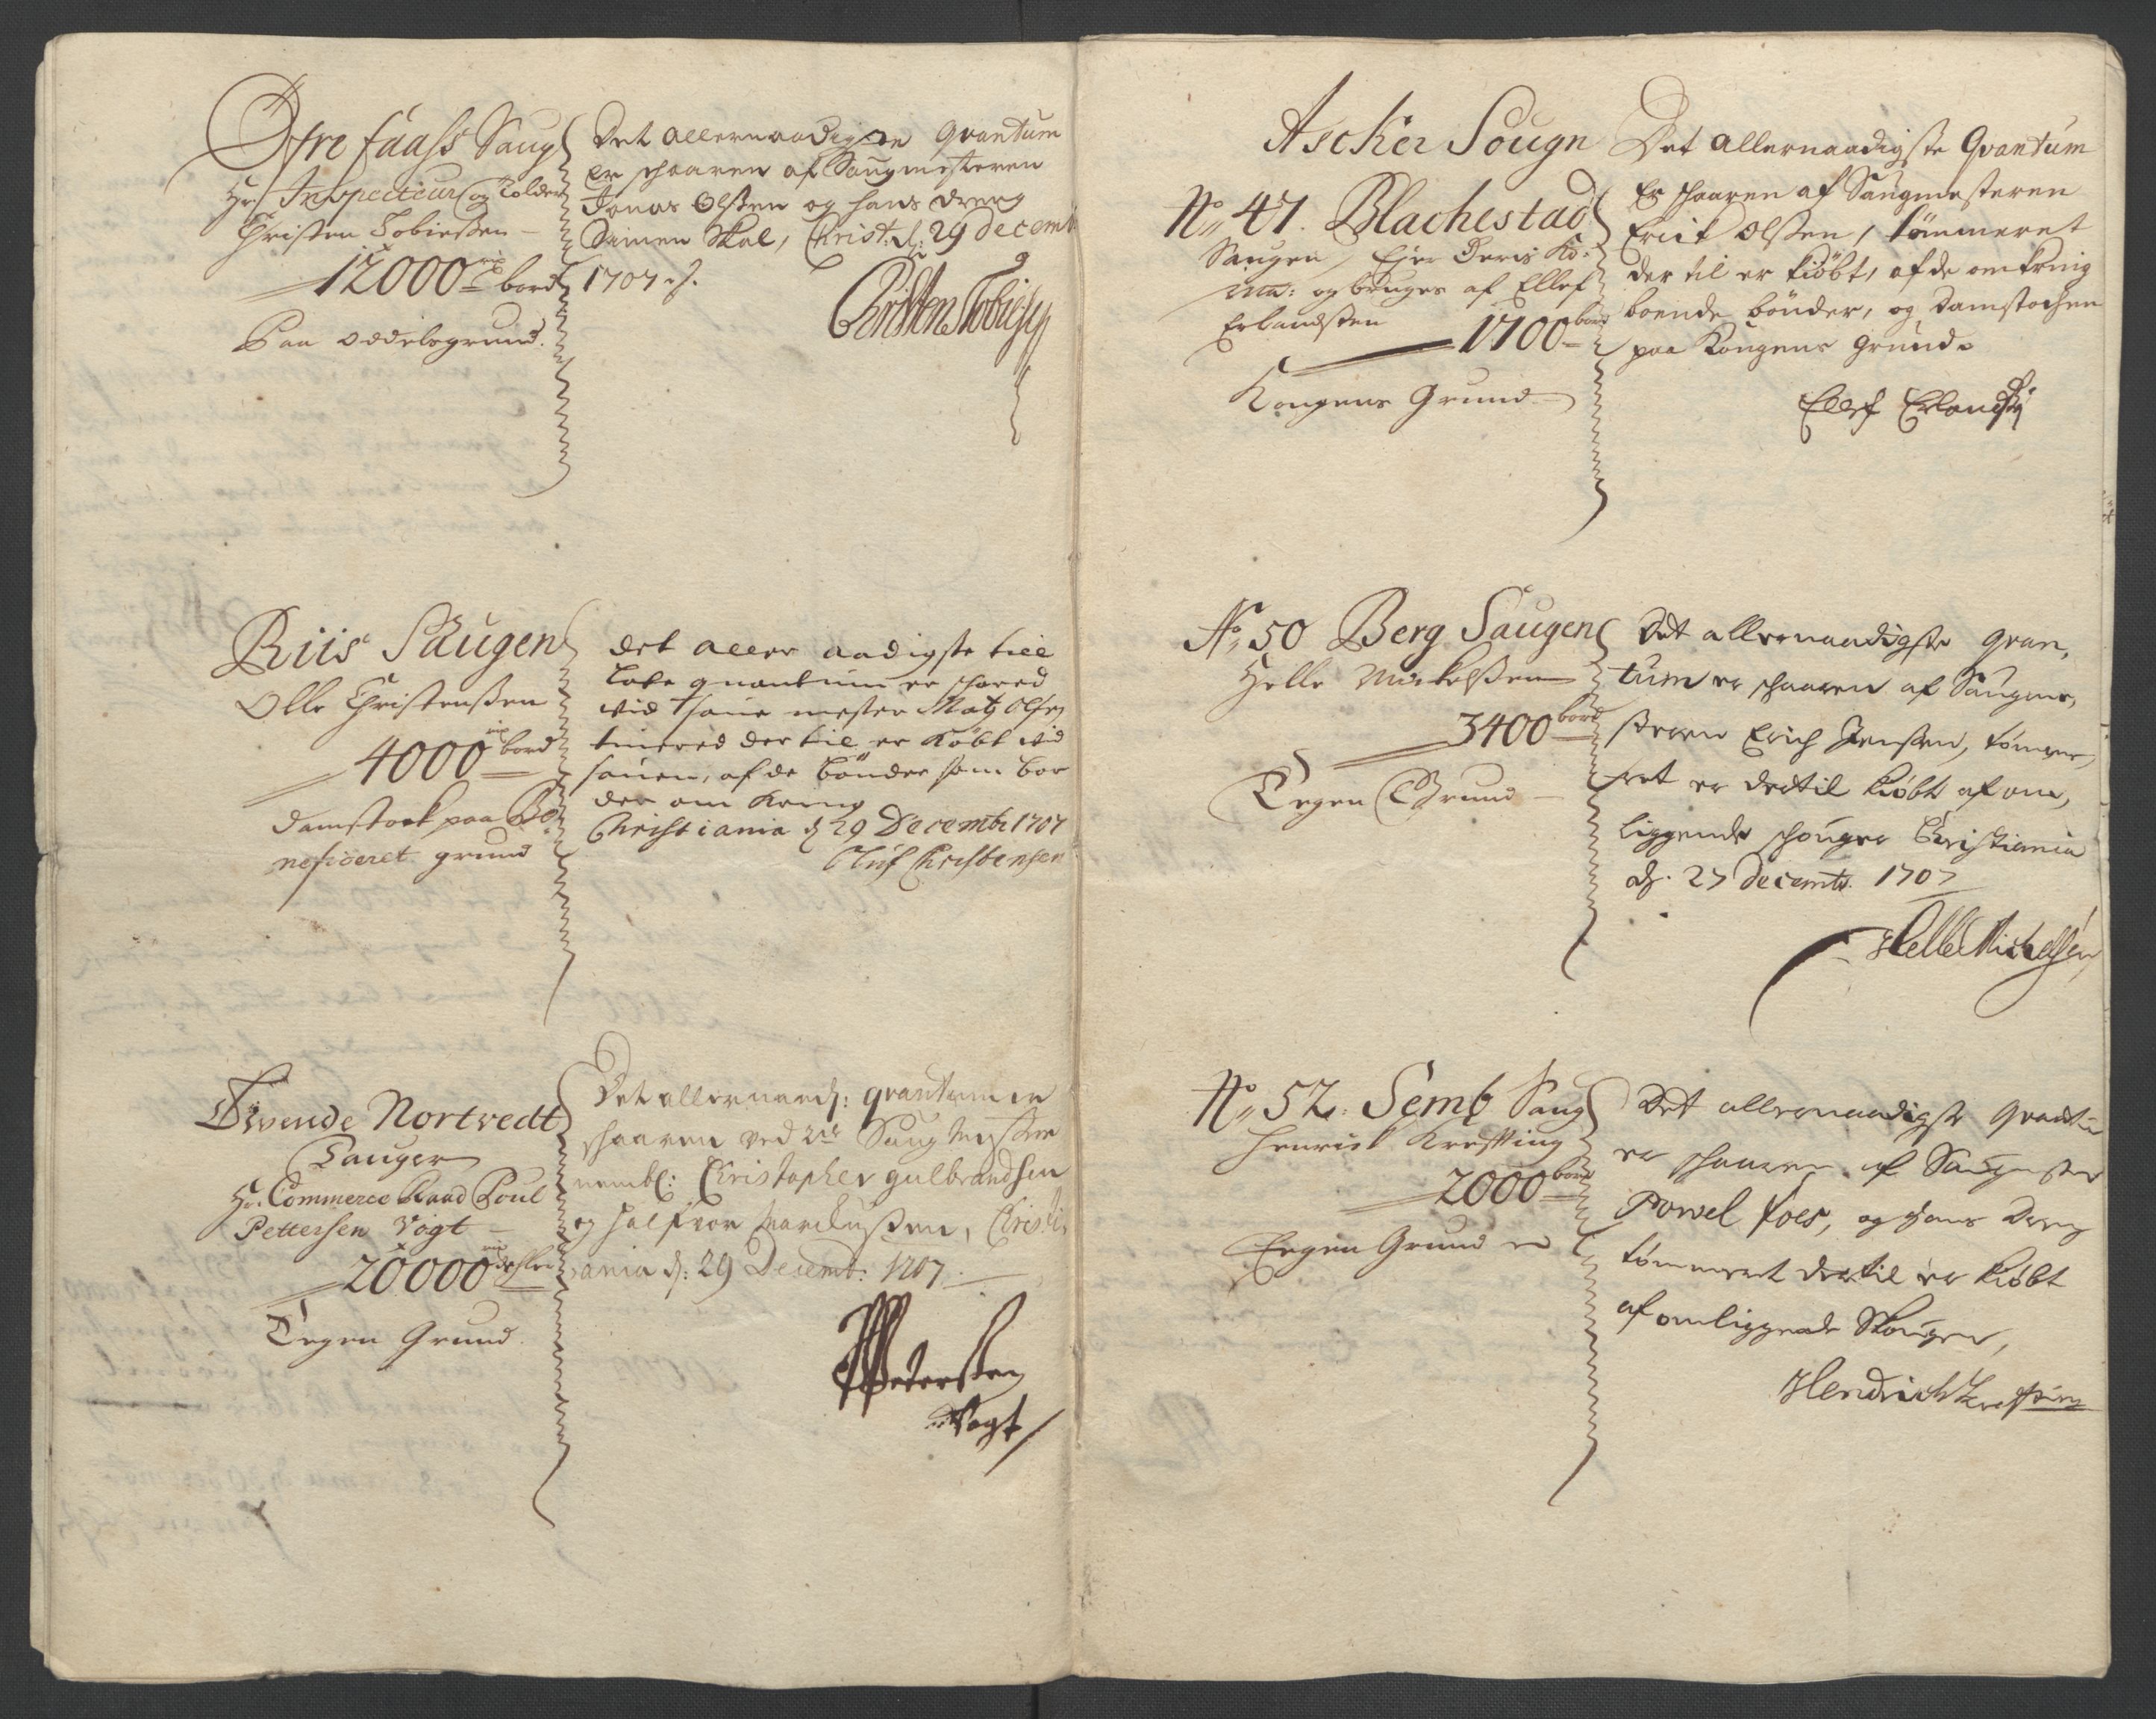 Øfre faass Saug
Hr Inspecteur og Tolder
Christen Tobiessen
12000 bord
Paa oddelsgrund.
Det allernaadigste Qvantum
er schaaren af Saugmesteren
Jonas Olssen og hans dreng
Simen Skal, Christ: d: 29 decemb
1707.
Christen Tobiess
Riis Saugen
Olle Christenssen
4000 bord
damstock paa Be
neficeret grund
det aller aadigste till
latte quantum er schared
vid saue mester Matz Olsen
timered der til er Købt vid
sauen, af de bönder som bor
der om Kring
Christiania d 29 Decembr 1707
Oluf Christensen
Tvende Nortvedt
Sauger
Hr. Commerce Raad Poul
Pettersen Vogt
20000 deller
Eegen Grund
Det allernaad: qvantum er
schaaren ved 2de Saug Mestere
nembl: Christopher gulbrandsen
og Halfvor Marcussen, Christi
ania d: 29 Decemb: 1707
PPetersen
Vogt
Ascher Sougn
No 47. Blachestad
Saugen, Ejer Joris
og bruges af Ellef
Erlandssen
1700 bord
Kongens Grund
Det allernaadigste Qvantum
Er schaaren af Saugmesteren
Erick Olssen, tömmeret
der til er kiöbt, af de omkring
boende bönder, og damstochen
paa Kongens grund
Ellef Erlands
No 50 Berg Saugen
Helle Mickelssen
3400 bord
Eegen Grund
Det allernaadigste Qvan,
tum er schaaren af Saugme,
steren Erich Jenssen, tömme,
ret er dertil kiöbt af om,
liggende schouger Christiania
d. 27 decembr. 1707
Helle Michelsen
No 52. Semb Saug
Henrick Kresting
2000 bord
Eegen Grund
Det allernaadigste Qvantu
er schaaren af Saugmester
Powel foes, og hans Dreng
tömmeret dertil er kiöbt
af omliggende Skouger,
Hendrich Kresting